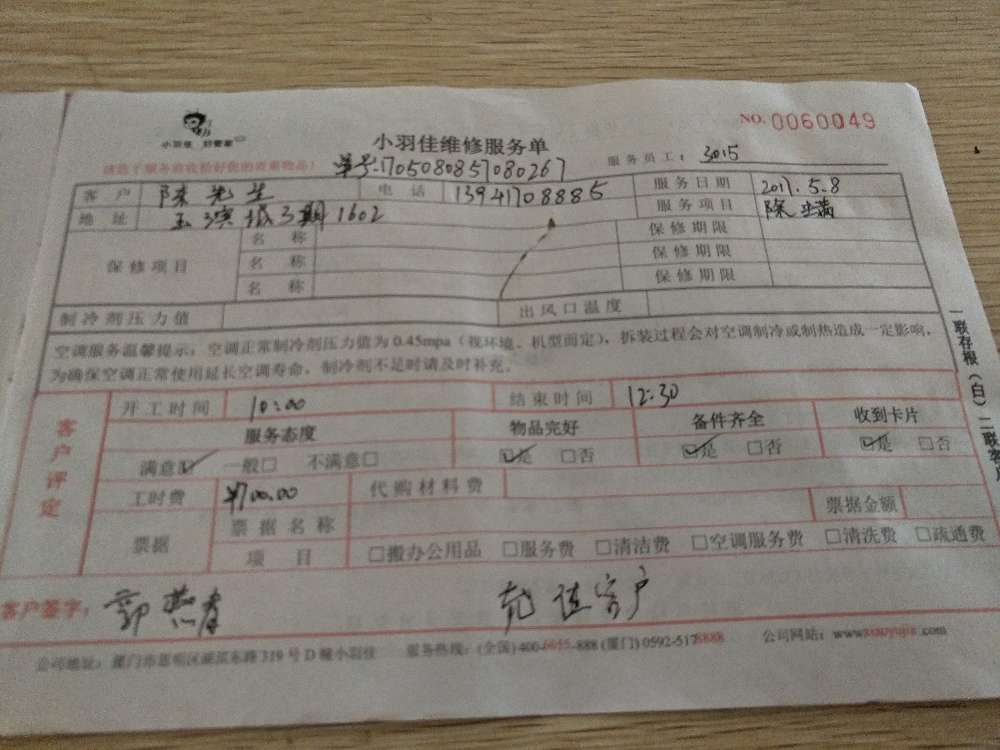 小羽佳 好管家
小羽佳维修服务单
NO. 0060049
请选于服务前收拾好您的贵重物品！
单号:1705080857080267
服务员工： 3015
客户 陈先生 电话 13941708885 服务日期 2017.5.8
地址 玉滨城3期1602 服务项目 除螨
保修项目 名称 保修期限
名称 保修期限
名称 保修期限
制冷剂压力值 出风口温度
空调服务温馨提示：空调正常制冷剂压力值为0.45mpa（视环境、机型而定），拆装过程会对空调制冷或制热造成一定影响，
为确保空调正常使用延长空调寿命，制冷剂不足时请及时补充。
客户评定
开工时间 10:00 结束时间 12:30
服务态度 物品完好 备件齐全 收到卡片
满意☑ 一般□ 不满意□ ☑是 □否 ☑是 □否 ☑是 □否
工时费 ¥700.00 代购材料费
票据 票据名称 票据金额
项目 □搬办公用品 □服务费 □清洁费 □空调服务费 □清洗费 □疏通费
客户签字： 郭燕青 客户
公司地址：厦门市思明区 东路319号D幢小羽佳 服务热线：(全国)400-6655-888 (厦门)0592-5178888 公司网站：www.xiaoyujia.com
一联存根（白）二联客户